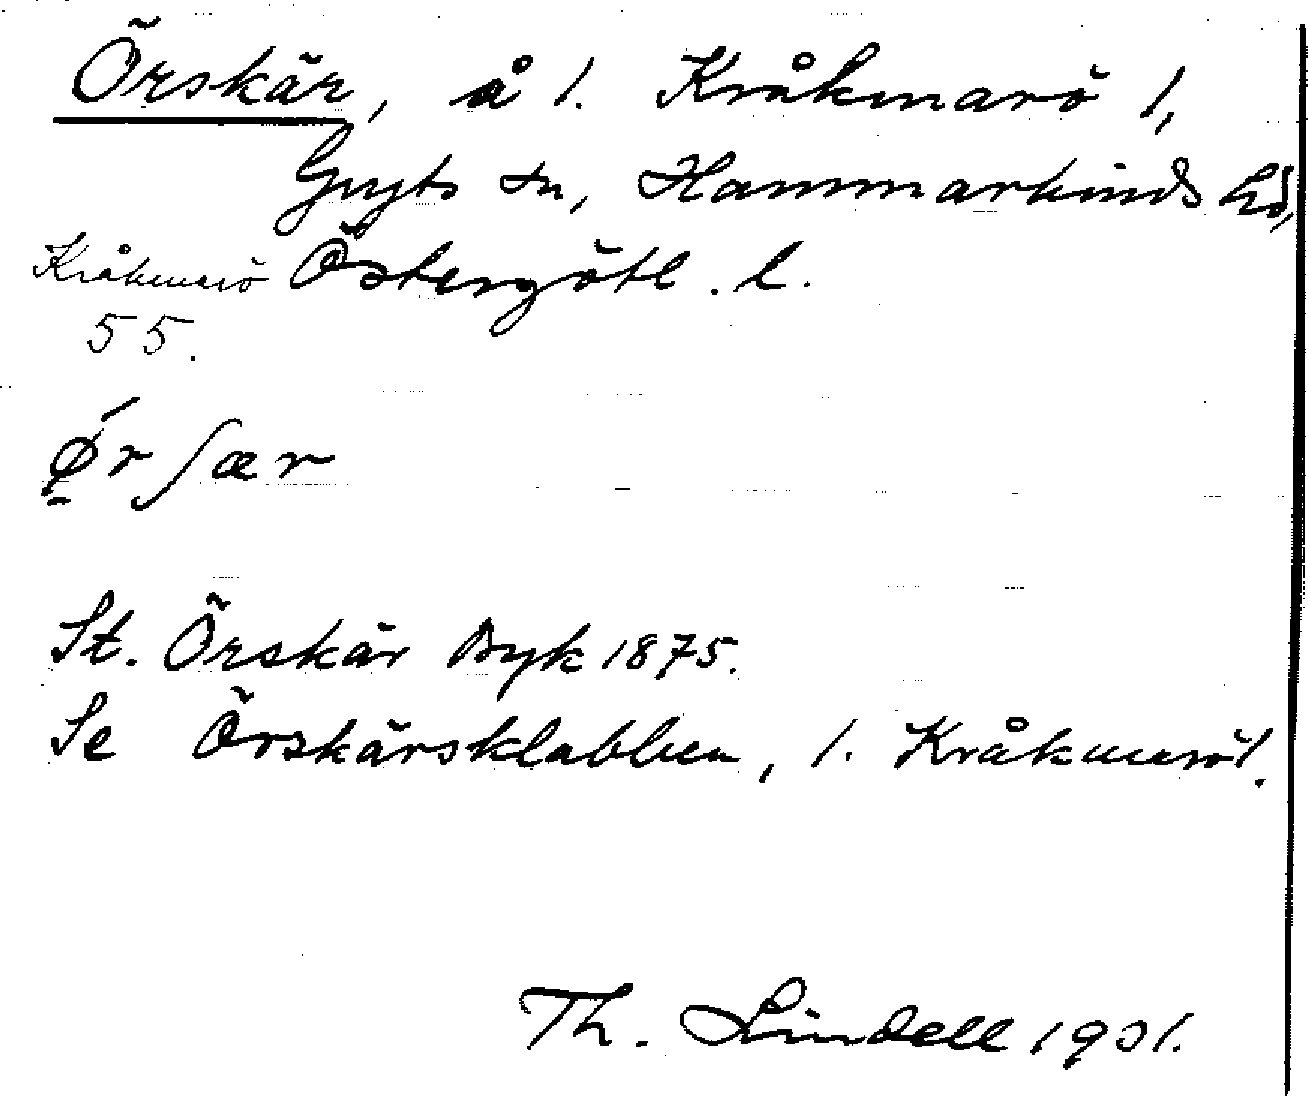 Örskär, å l. Kråkmarö l,
Gryts sn, Hammarkinds hd,
Kråkmarö Östergötl. l.
55.
ǿ̱r ʃær
St. Örskär Byk 1875.
Se Örskärsklabben, l. Kråkmaröl.
Th. Lindell 1901.